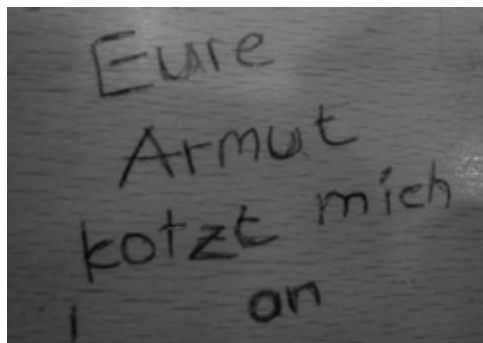 Eure
Armut
kotzt mich
an